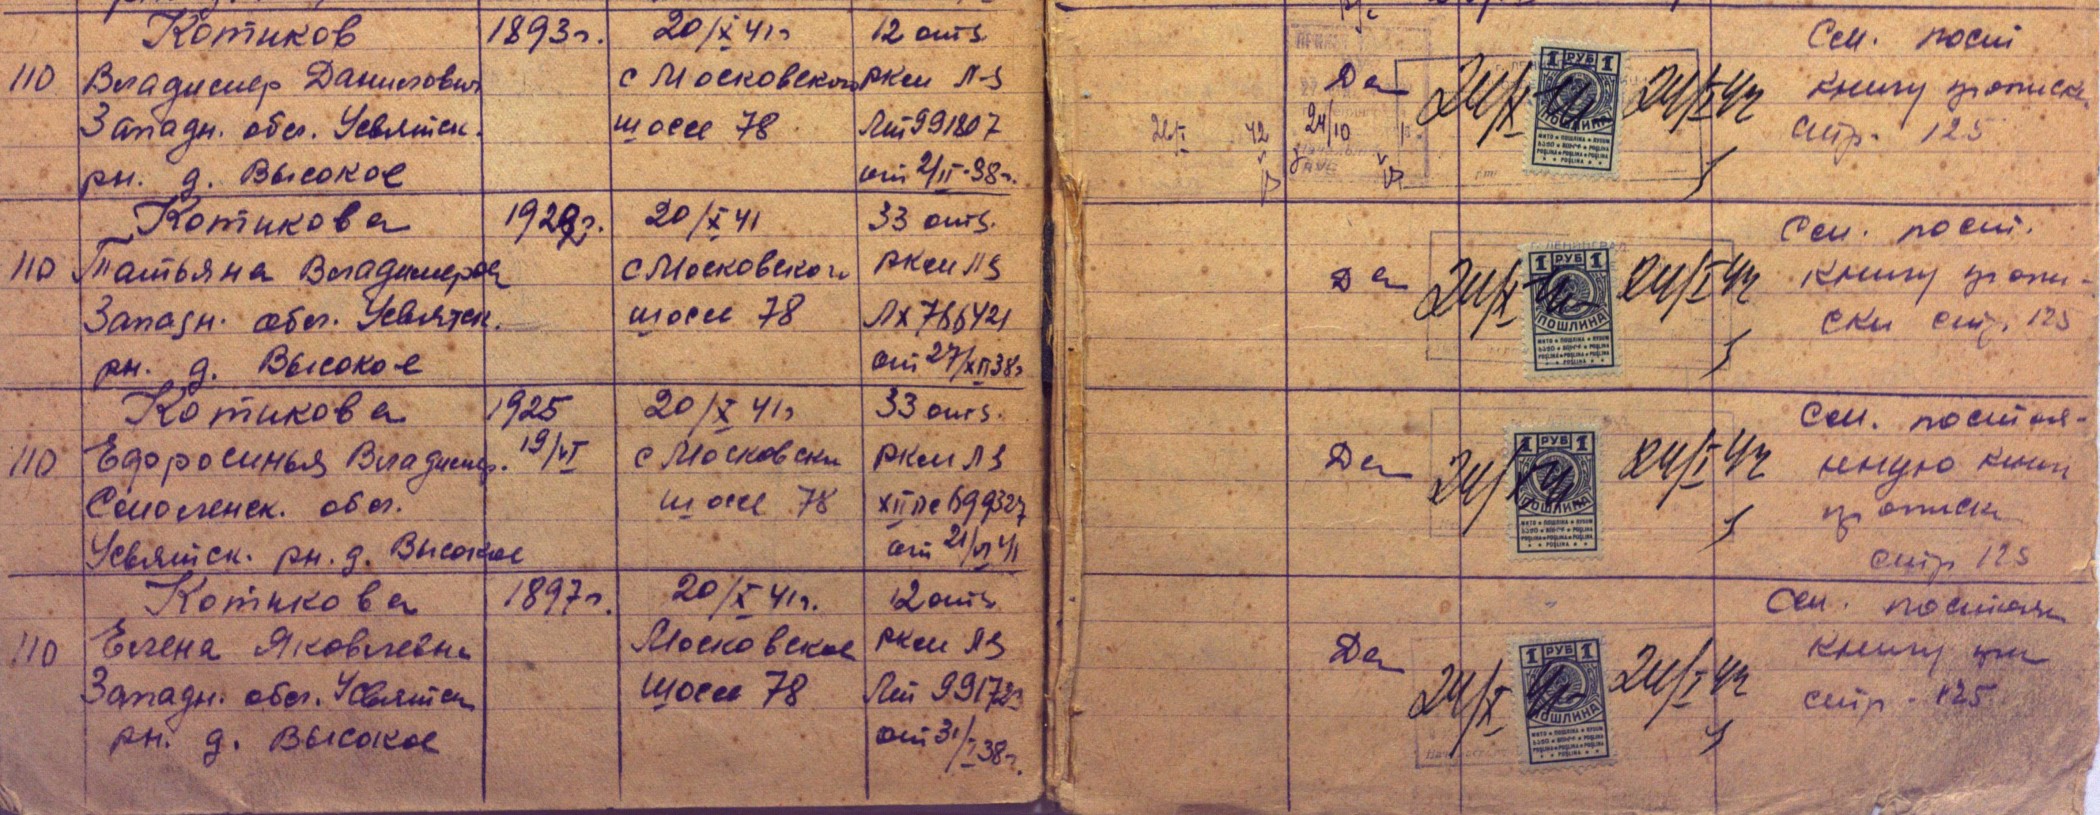 Котиков 1893г. 20/X 41г 12 отд. Сем. пост
110 Владимир Данилович с Московского РКМ ЛЗ Да 24/X 41 24/I 42 книгу прописки
Западн. обл. Усвятск. шоссе 78 Лт 991807 24/10 стр. 125
рн. д. Высокое от 2/II-38г.
1 РУБ 1
ПОШЛИНА
Котикова 1922г. 20/X 41 33 отд. Сем. пост.
110 Татьяна Владимиров с Московского РКМ ЛЗ Да 24/X 41 24/I 42 книгу пропи-
Западн. обл. Усвятск. шоссе 78 Лх 766421 ски стр. 125
рн. д. Высокое от 27/XII 38г
1 РУБ 1
ПОШЛИНА
Котикова 1925 20/X 41г 33 отд. Сем. постоя-
110 Ефросинья Владимир. 19/VI с Московски РКМ ЛЗ Да 24/X 41 24/I 42 нную книгу
Смоленск. обл. шоссе 78 699327 прописки
Усвятск. рн. д. Высокое от 21/VI 41 стр. 125
1 РУБ 1
ПОШЛИНА
Котикова 1897г. 20/X 41г. 12 отд. Сем. постоян
110 Елена Яковлевна Московское РКМ ЛЗ Да 24/X 41 24/I 42 книгу
Западн. обл. Усвятск шоссе 78 Лт стр. 125
рн. д. Высокое от 31/I 38г.
1 РУБ 1
ПОШЛИНА